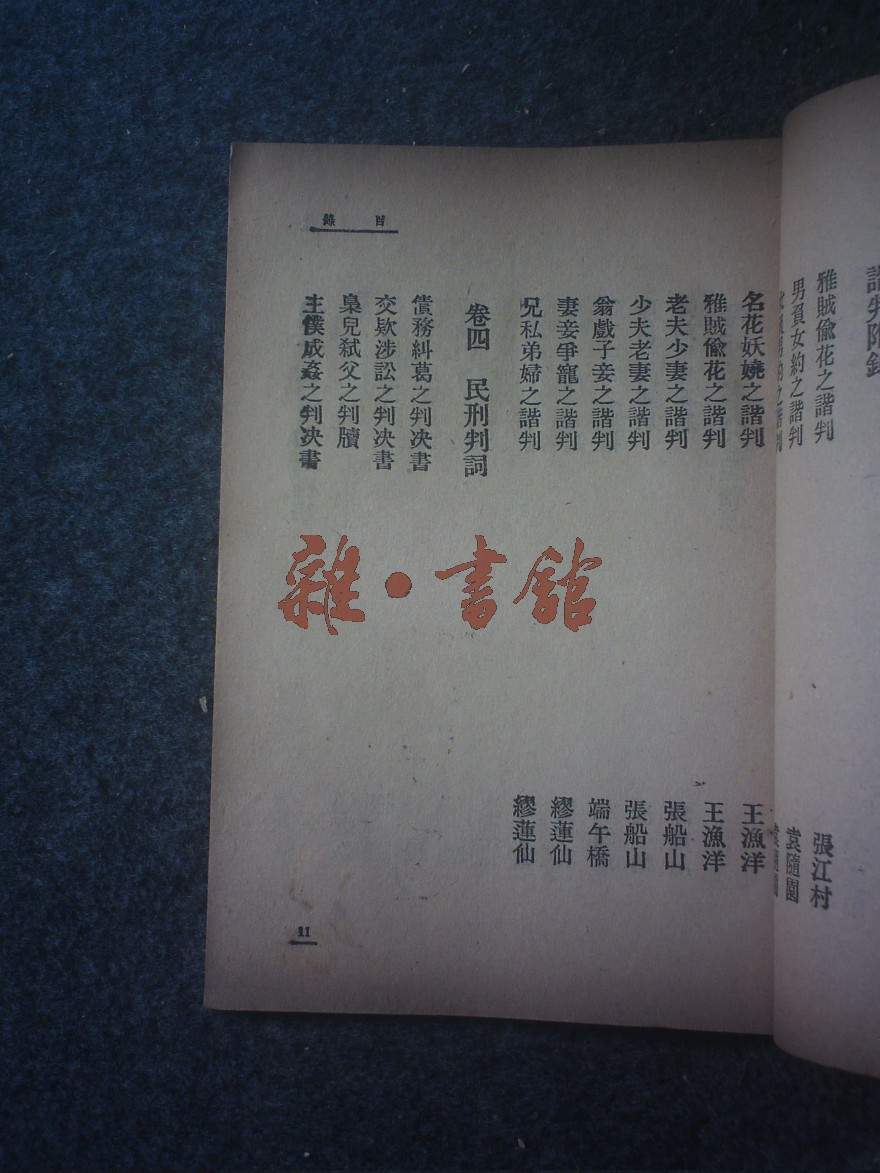 諧判附錄
雅賊偷花之諧判 張江村
男負女約之諧判 袁隨園
目錄
名花妖嬈之諧判 王漁洋
雅賊偷花之諧判 王漁洋
老夫少妻之諧判 張船山
少夫老妻之諧判 張船山
翁戲子妾之諧判 端午橋
妻妾爭寵之諧判 繆蓮仙
兄私弟婦之諧判 繆蓮仙
卷四 民刑判詞
債務糾葛之判决書
交欵涉訟之判决書
梟兒弑父之判牘
主僕成姦之判决書
11
雜·書館